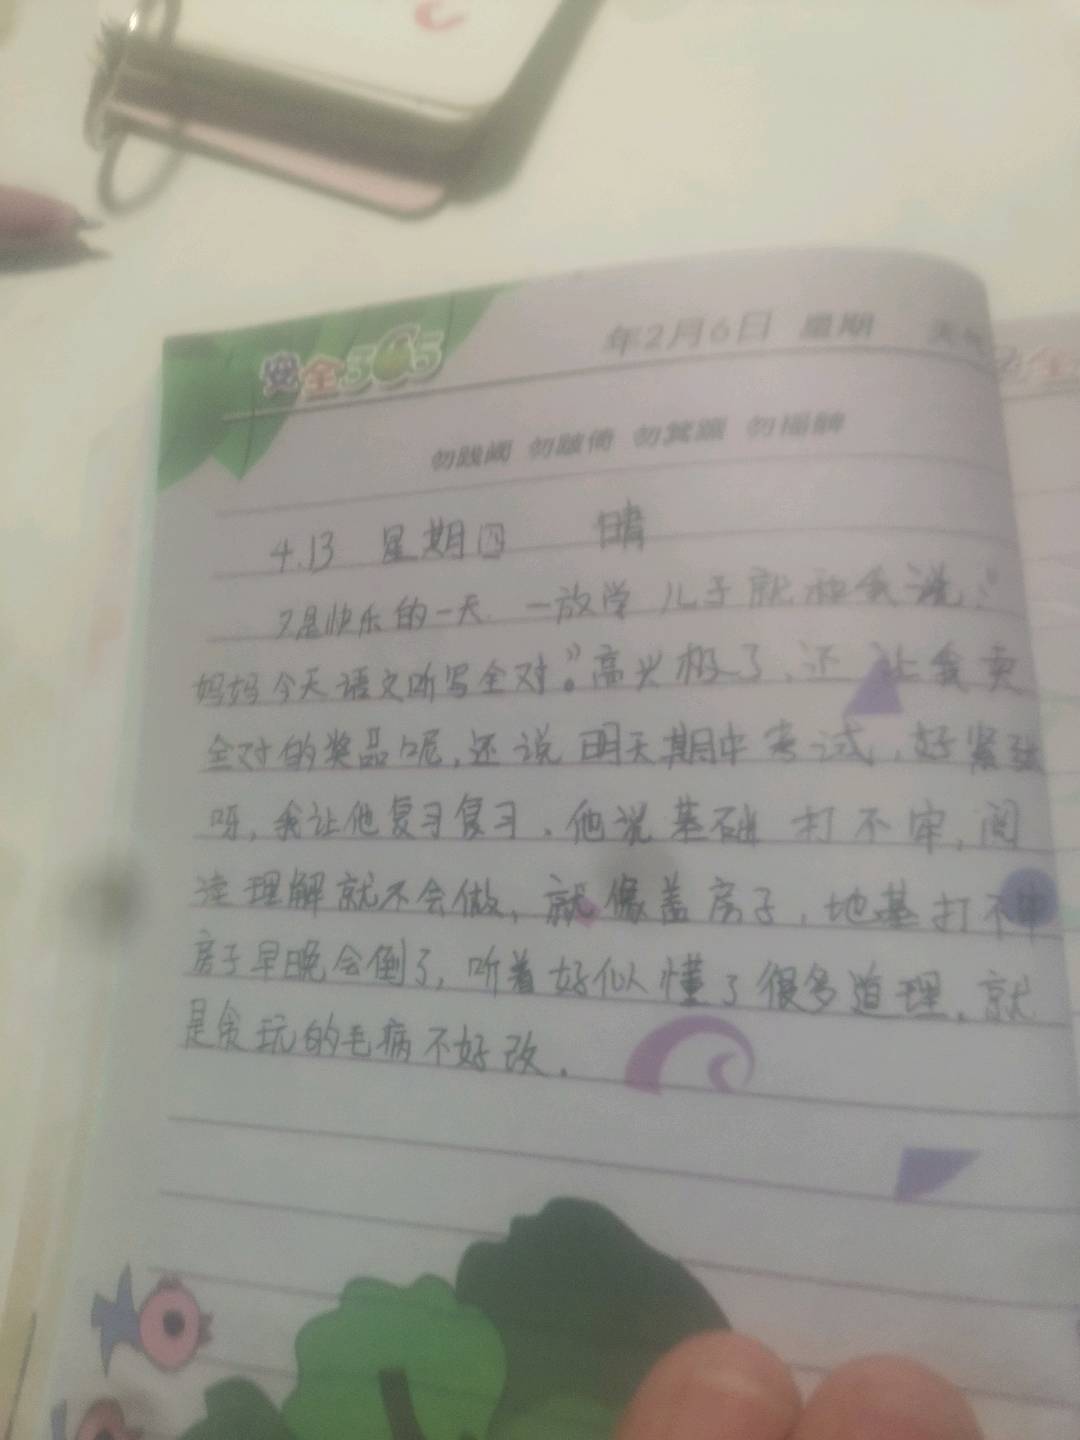 安全365
年2月6日 星期 天气
勿践阈 勿跛倚 勿箕踞 勿摇髀
4.13 星期四 晴
又是快乐的一天. 一放学 儿子就和我说："
妈妈今天语文听写全对"。高兴极了, 还让我卖
全对的奖品呢, 还说明天期中考试, 好紧张
呀, 我让他复习复习, 他说基础 打不牢, 阅
读理解就不会做, 就像盖房子, 地基打不牢
房子早晚会倒了, 听着好似懂了很多道理, 就
是贪玩的毛病不好改.